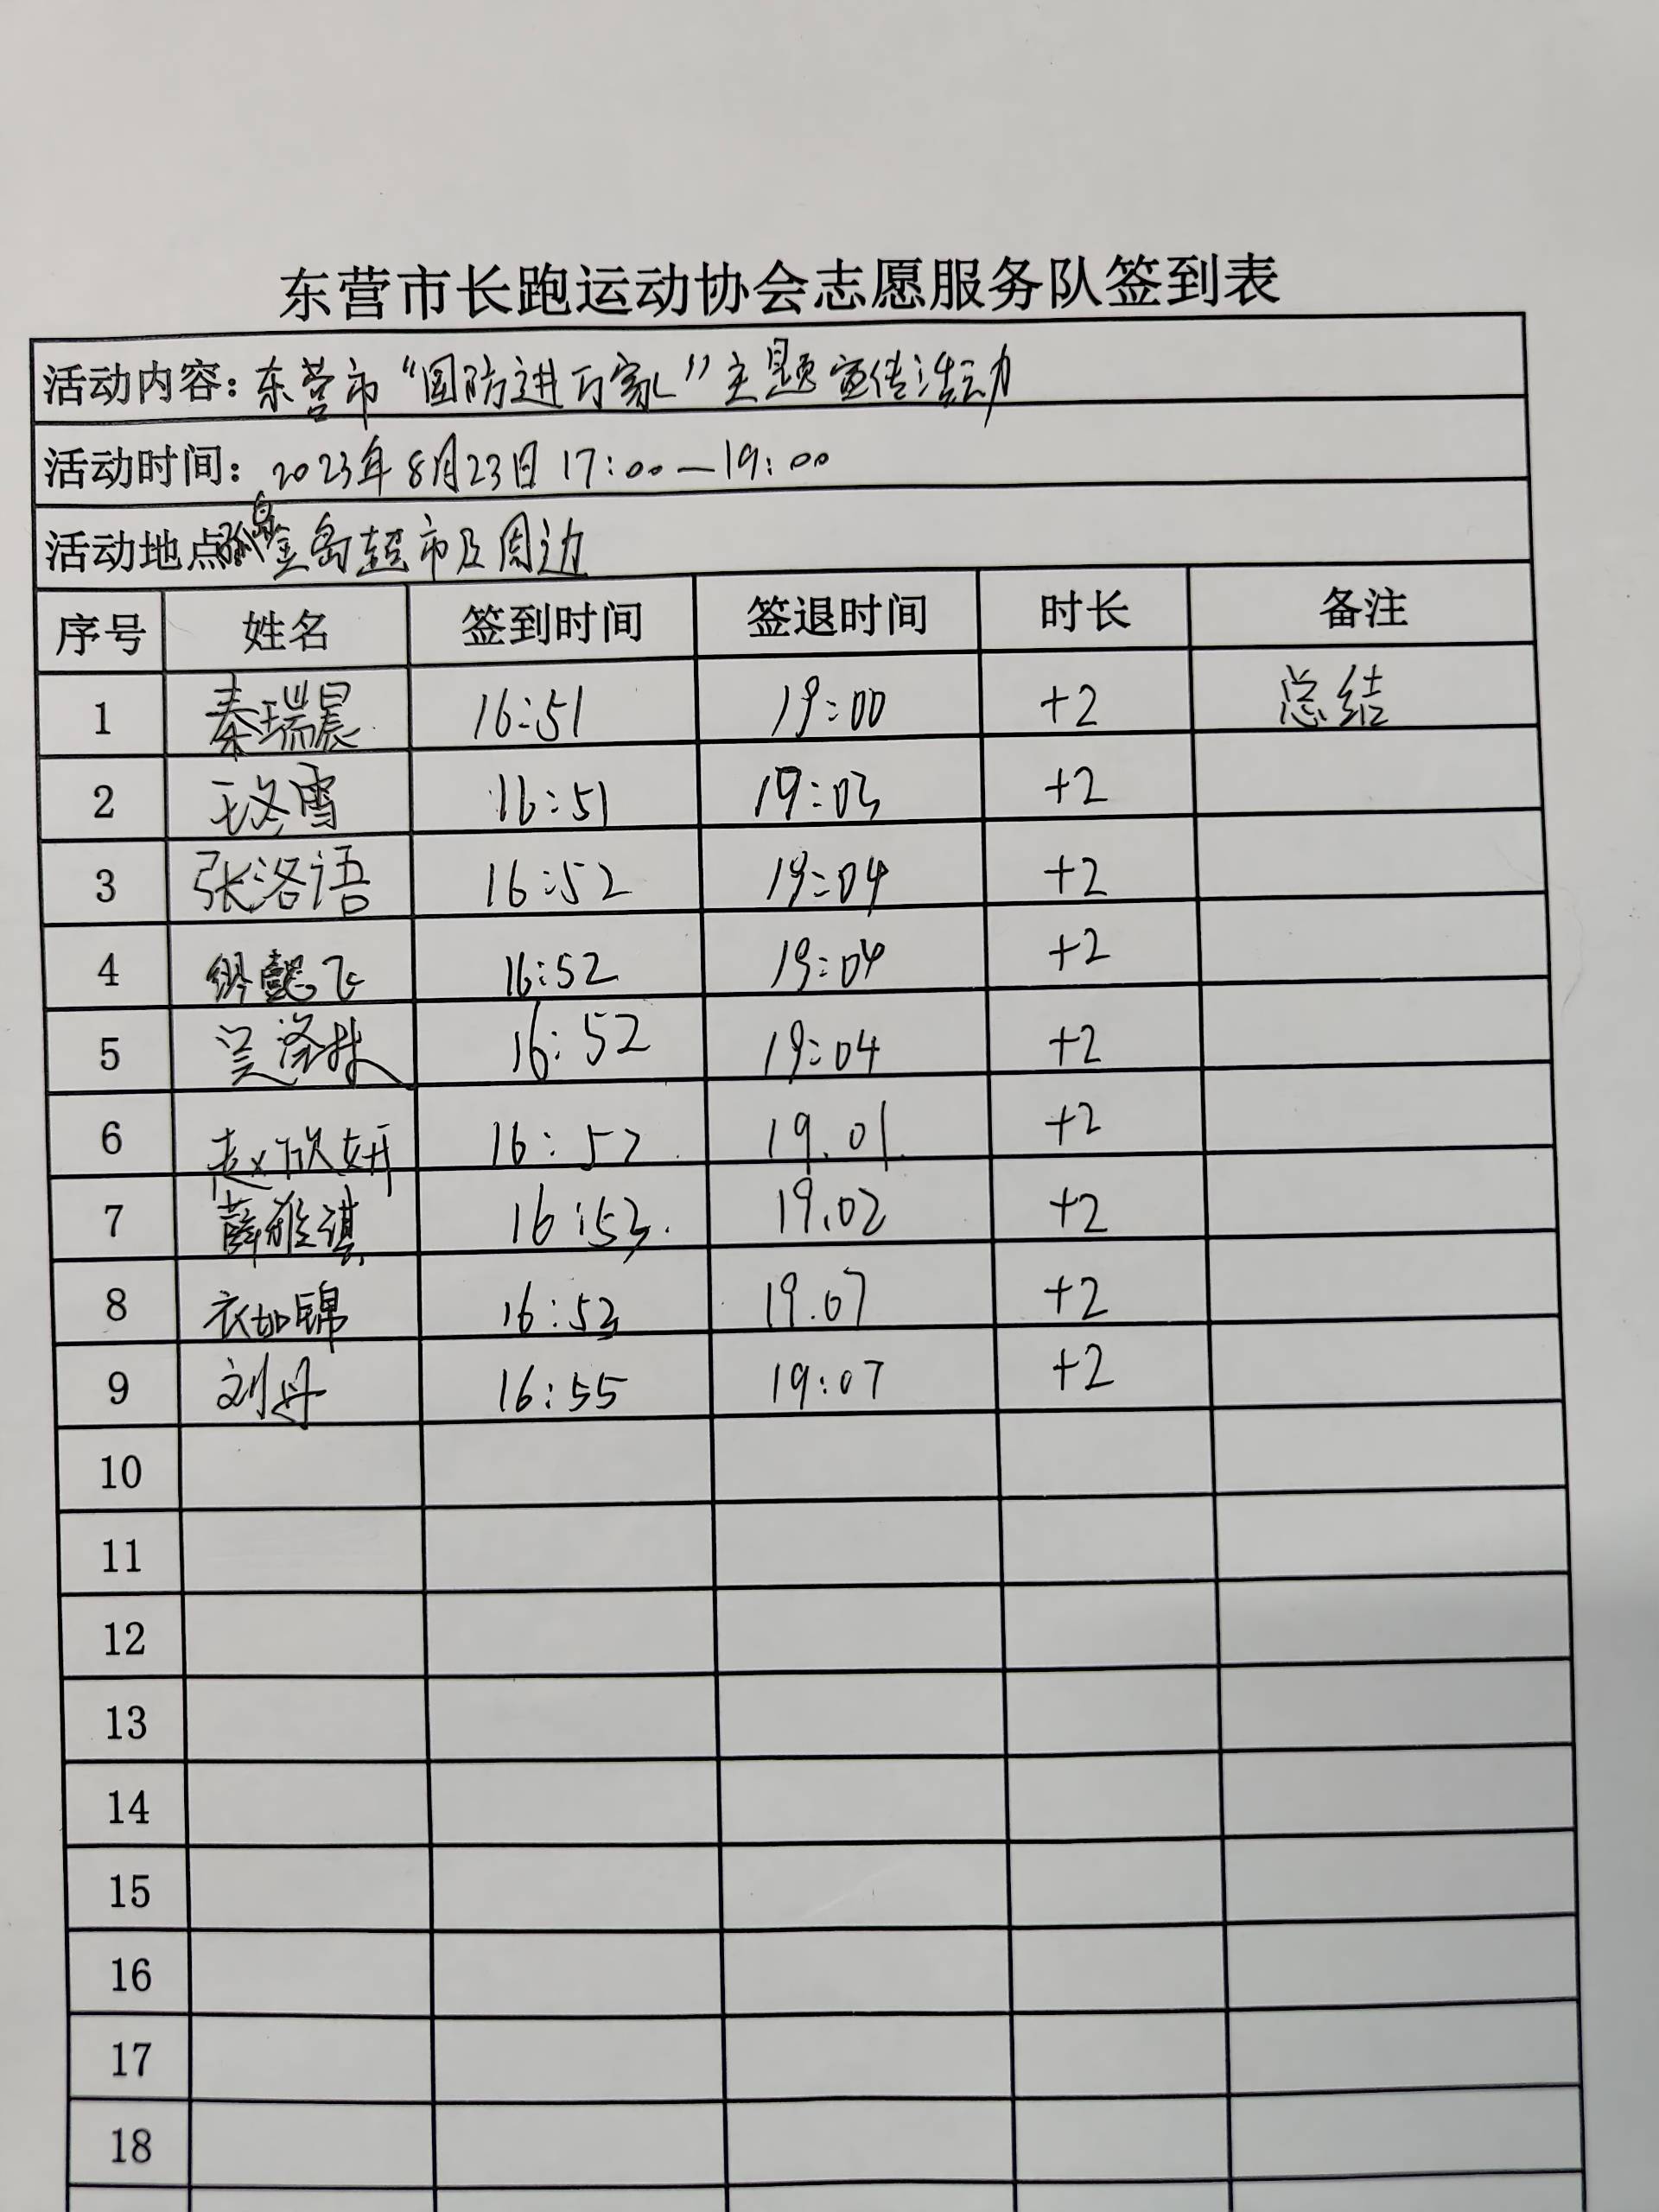 东营市长跑运动协会志愿服务队签到表
活动内容：东营市“国防进万家”主题宣传活动
活动时间：2023年8月23日 17:00—19:00
活动地点 金岛超市及周边
序号 姓名 签到时间 签退时间 时长 备注
1 秦瑞晨 16:51 19:00 +2 总结
2 16:51 19:03 +2
3 张洛语 16:52 19:04 +2
4 缪懿飞 16:52 19:04 +2
5 16:52 19:04 +2
6 赵欣妍 16:52 19.01 +2
7 薛雅淇 16:53 19.02 +2
8 衣如锦 16:53 19.07 +2
9 刘丹 16:55 19:07 +2
10
11
12
13
14
15
16
17
18